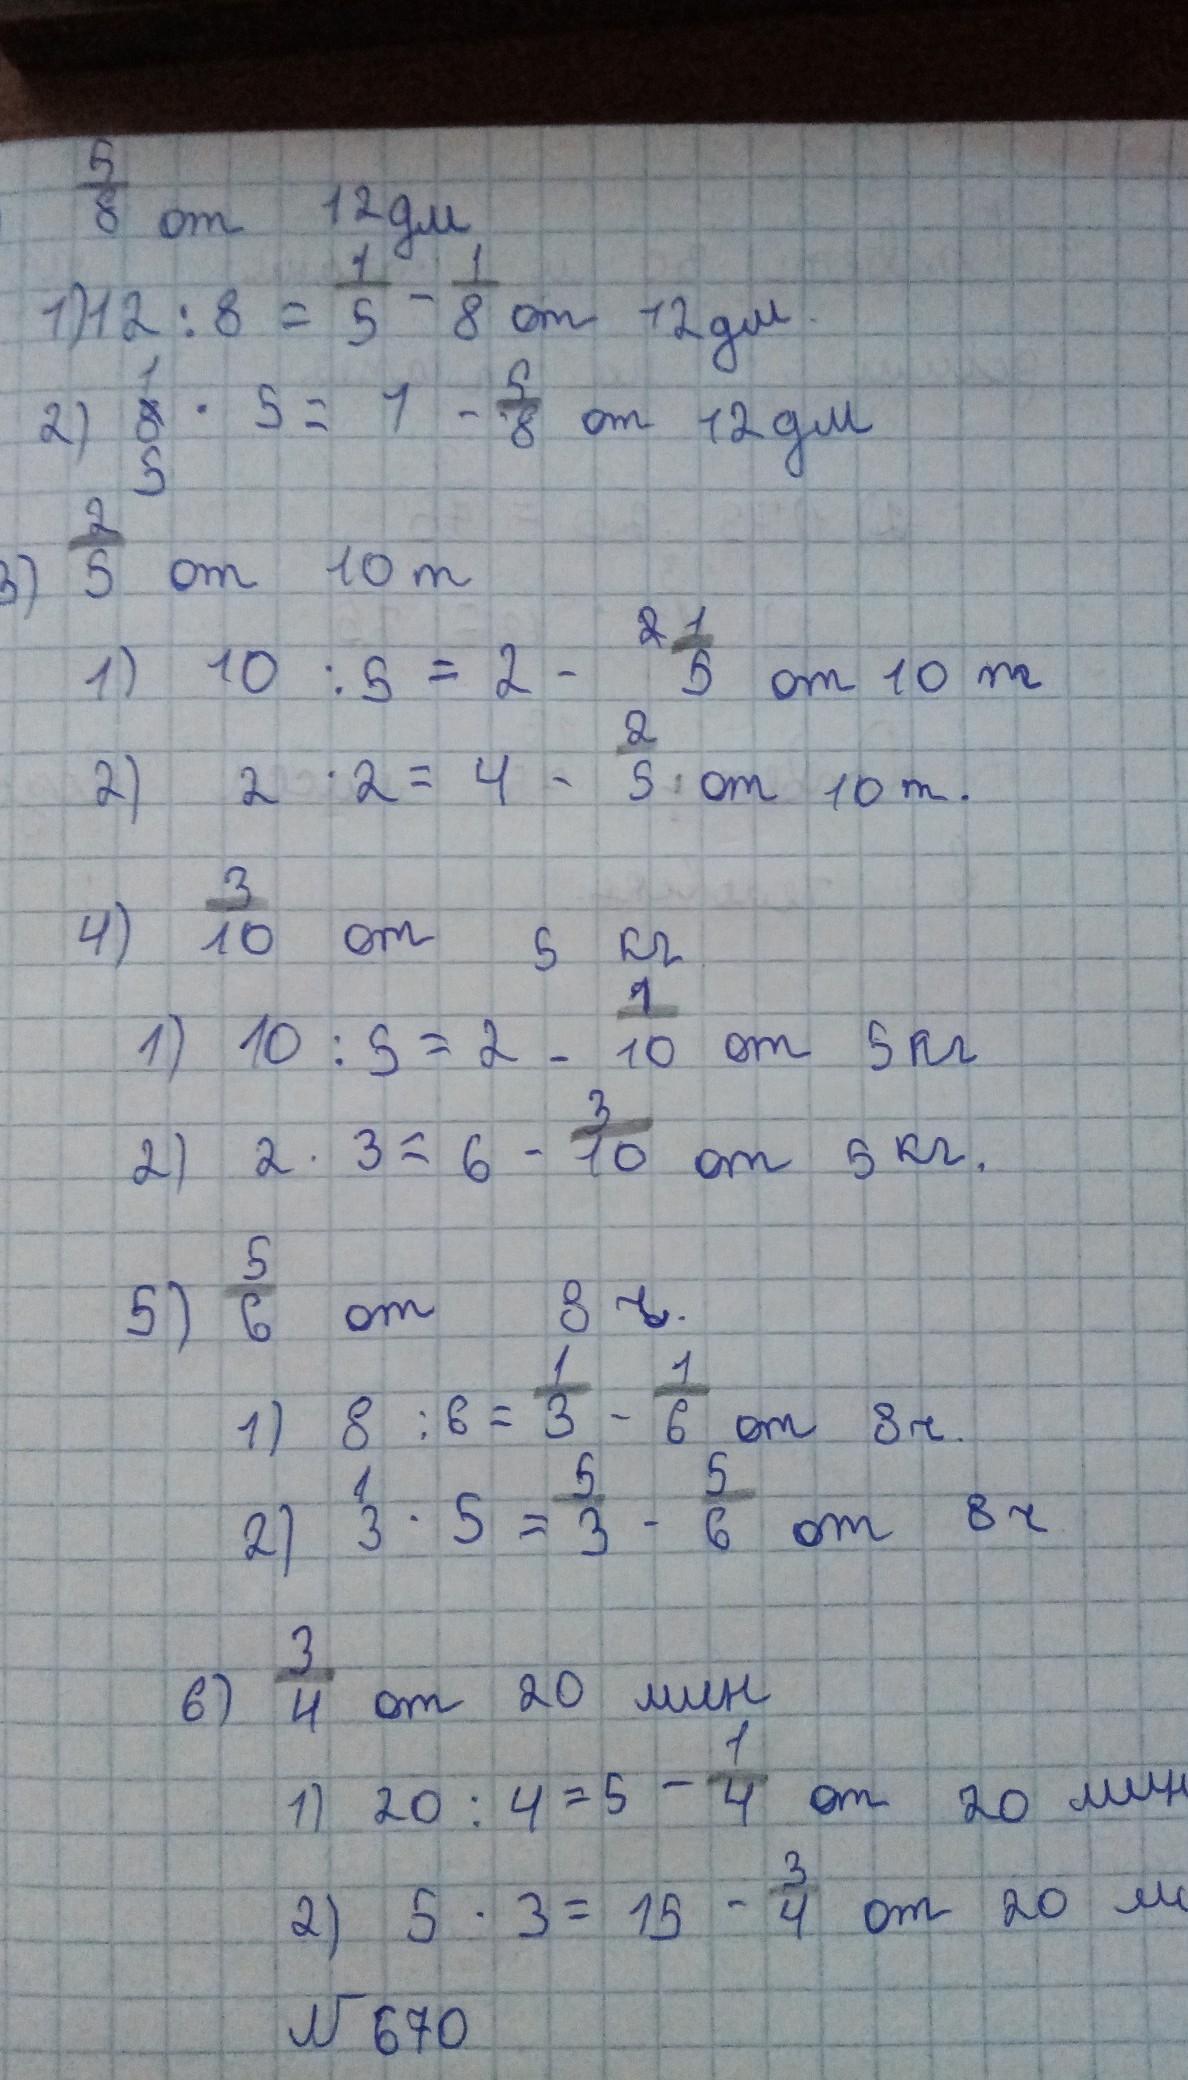 5/8 от 12дм
1) 12 : 8 = 1/5 - 1/8 от 12дм.
2) 1/5 · 5 = 1 - 5/8 от 12дм
3) 2/5 от 10т
1) 10 : 5 = 2 - 1/5 от 10 т
2) 2 · 2 = 4 - 2/5 от 10 т.
4) 3/10 от 5 кг
1) 10 : 5 = 2 - 1/10 от 5кг
2) 2 · 3 = 6 - 3/10 от 5кг.
5) 5/6 от 8 ч.
1) 8 : 6 = 1/3 - 1/6 от 8ч.
2) 1/3 · 5 = 5/3 - 5/6 от 8ч
6) 3/4 от 20 мин
1) 20 : 4 = 5 - 1/4 от 20 мин
2) 5 · 3 = 15 - 3/4 от 20 м
№670